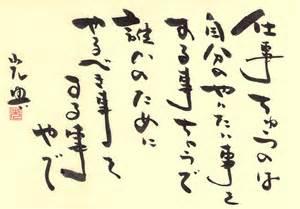 仕事ちゅうのは
自分のやりたい事を
する事ちゃうで
誰かのために
やるべき事を
する事やで